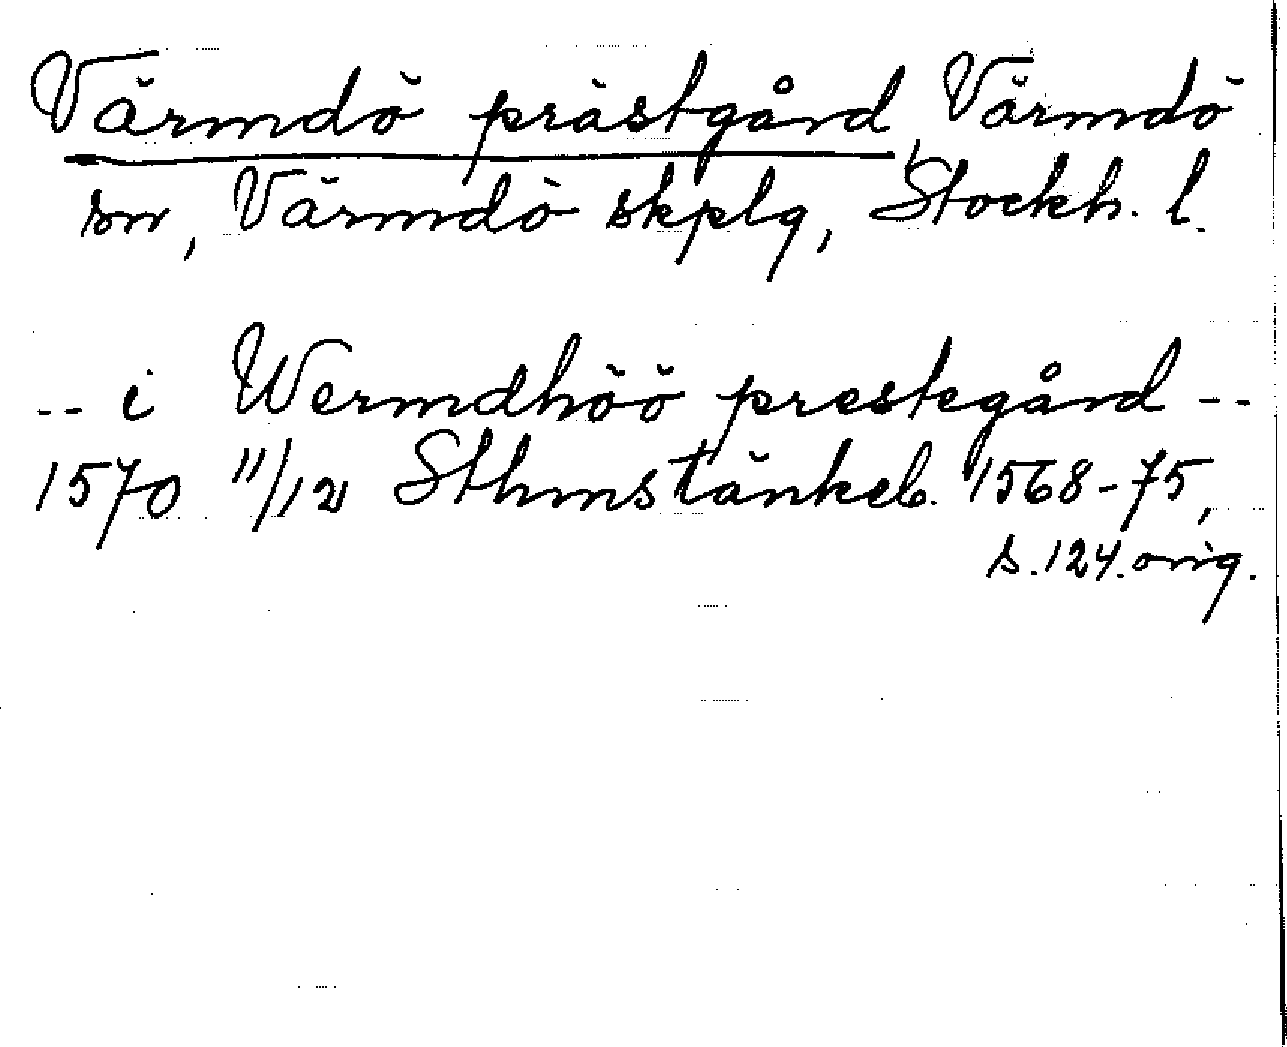 Värmdö prästgård, Värmdö
sn, Värmdö skplg, Stockh. l.
-- i Wermdhöö prestegård --
1570 11/12 Sthmstänkeb. 1568-75,
s. 124. orig.